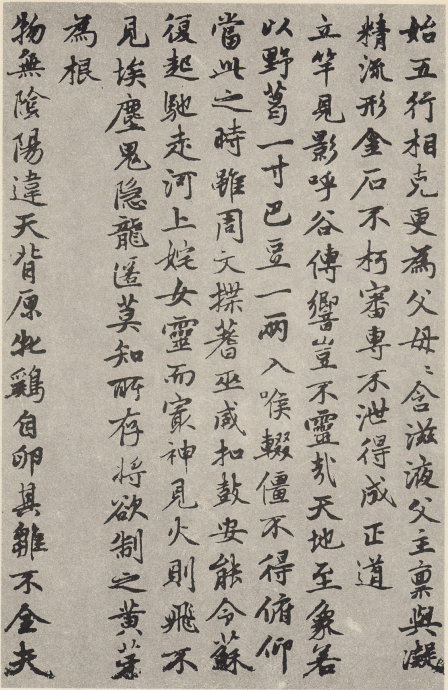 始五行相克更為父母〻含滋液父主稟與凝
精流形金石不朽審專不泄得成正道
立竿見影呼谷傳響豈不靈哉天地至象若
以野葛一寸巴豆一兩入喉輟僵不得俯仰
當此之時雖周文揲蓍巫咸扣鼓安能令蘇
復起馳走河上姹女靈而㝡神見火則飛不
見埃塵鬼隱龍匿莫知所存將欲制之黃芽
為根
物無陰陽違天背原牝鷄自卵其雛不全夫